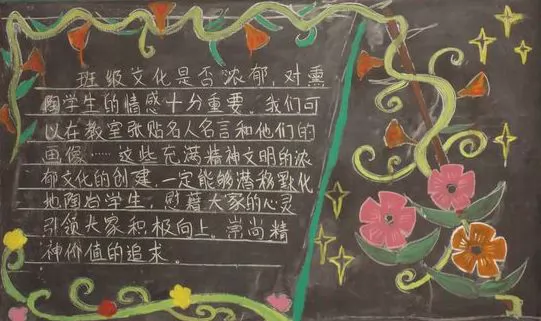 班级文化是否浓郁，对熏
陶学生的情感十分重要。我们可
以在教室张贴名人名言和他们的
画像……这些充满精神文明的浓
郁文化的创建，一定能够潜移默化
地陶冶学生，慰藉大家的心灵
引领大家积极向上、崇尚精
神价值的追求。